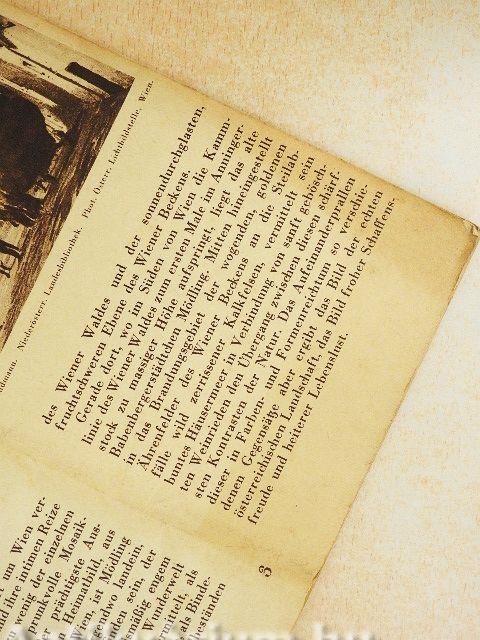 Niederösterr. Landesbibliothek. Phot. Österr. Lichtbildstelle, Wien.
des Wiener Waldes und der sonnendurchglasten,
fruchtschweren Ebene des Wiener Beckens.
Gerade dort, wo im Süden von Wien die Kamm-
linie des Wiener Waldes zum ersten Male im Anninger-
stock zu massiger Höhe aufspringt, liegt das alte
Babenbergerstädtchen Mödling. Mitten hineingestellt
in das Brandungsgebiet der wogenden, goldenen
Ährenfelder des Wiener Beckens an die Steilab-
fälle wild zerrissener Kalkfelsen, vermittelt sein
buntes Häusermeer in Verbindung von sanft geböscht-
ten Weinrieden den Übergang zwischen diesen schärf-
sten Kontrasten der Natur. Das Aufeinanderprallen
dieser in Farben- und Formenreichtum so verschie-
denen Gegensätze aber ergibt das Bild der echten
österreichischen Landschaft, das Bild froher Schaffens-
freude und heiterer Lebenslust.
um Wien ver-
d ihre intimen Reize
wenig der einzelnen
prunkvolle Mosaik-
prächtigste Aus-
Heimatbild, aus
n, ist Mödling
dwo landein,
den sein, der
smäßig engem
Wunderwelt
mittelt, als
als Binde-
eständen
3